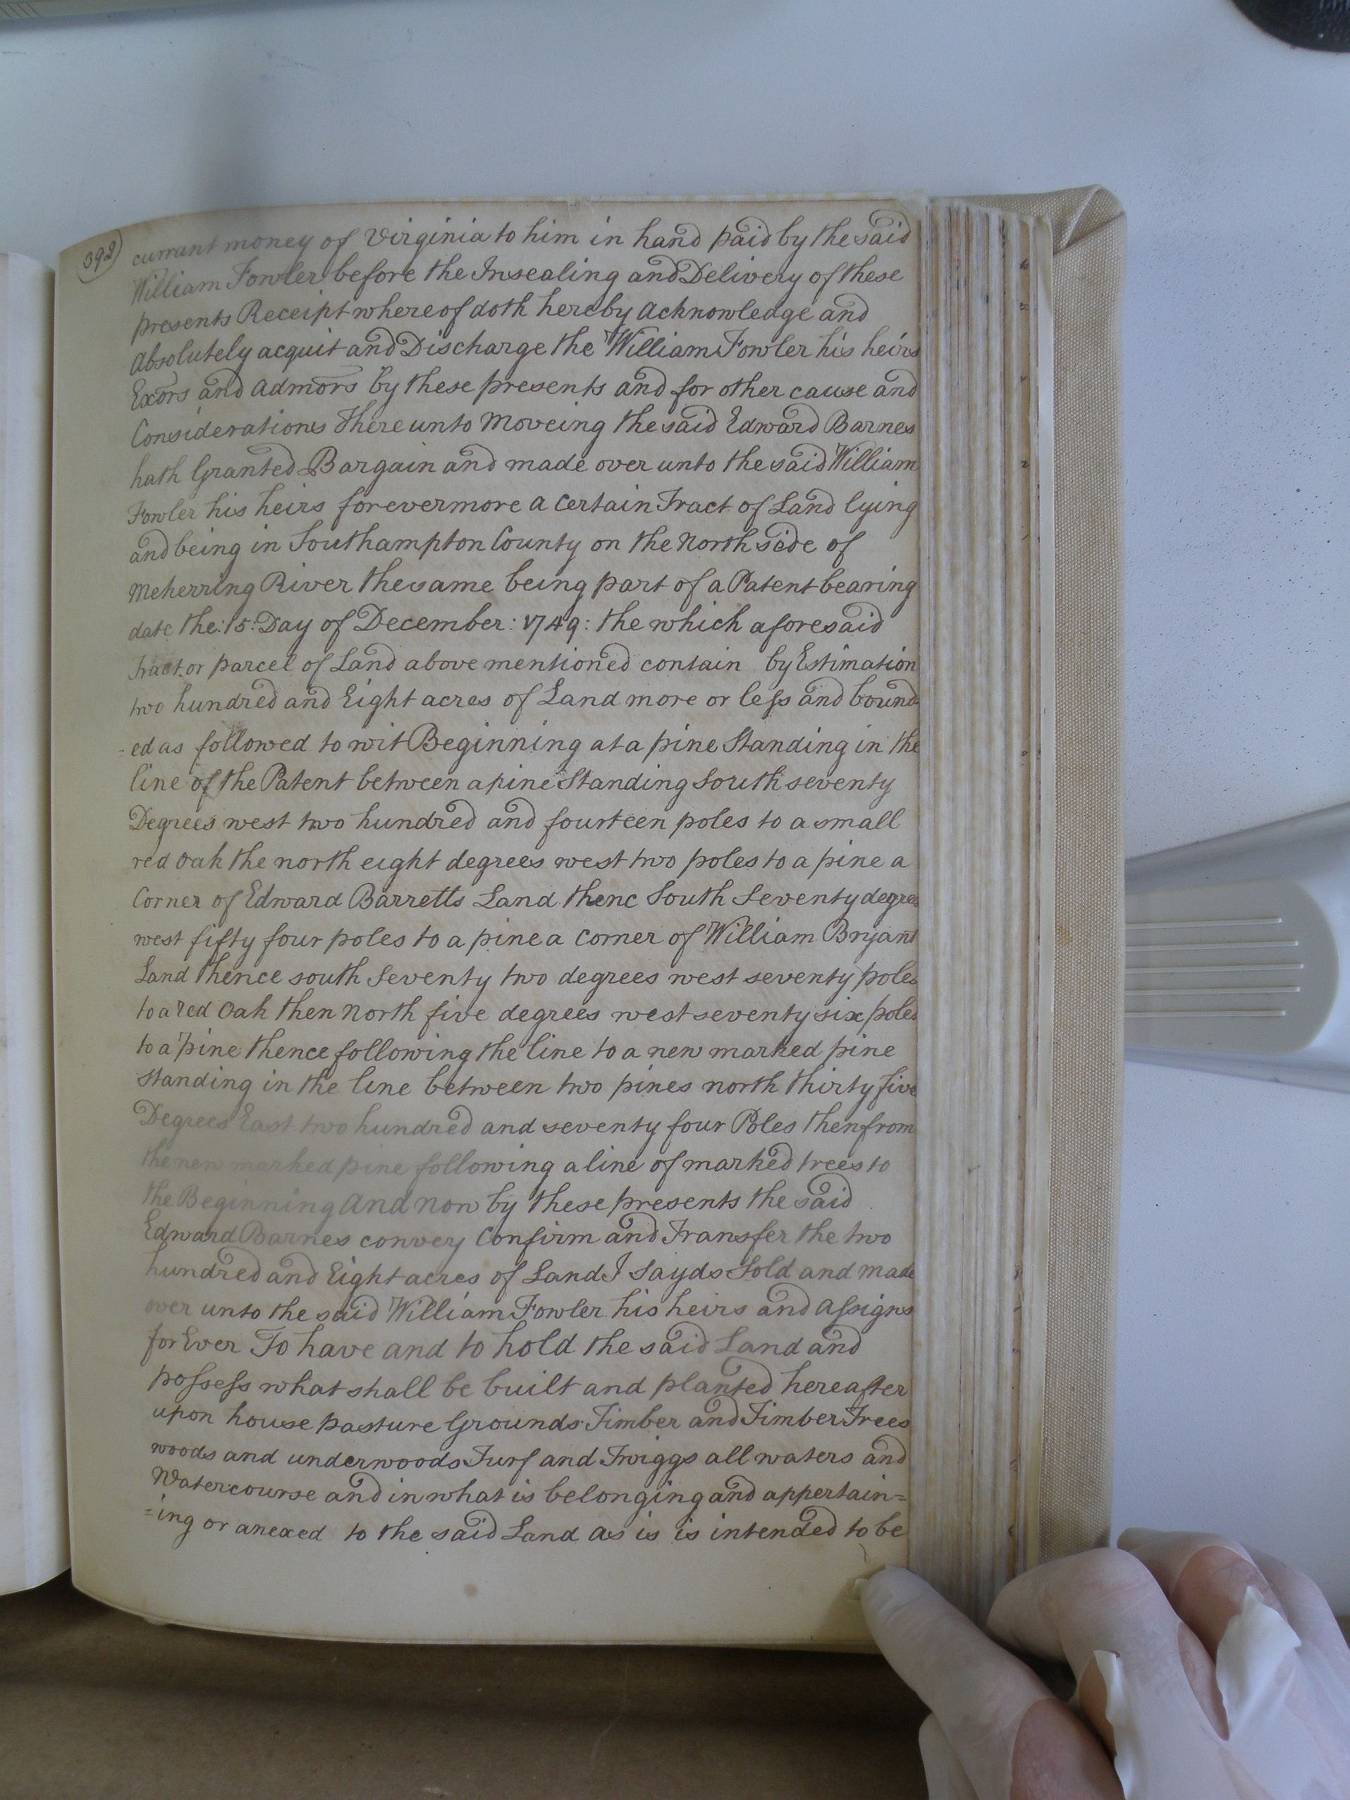 392
currant money of Virginia to him in hand paid by the said
William Fowler before the Insealing and Delivery of these
presents Receipt whereof doth hereby acknowledge and
absolutely acquit and Discharge the William Fowler his heirs
Exors and admors by these presents and for other cause and
Considerations there unto Moveing the said Edward Barnes
hath Granted Bargain and made over unto the said William
Fowler his heirs forevermore a Certain Tract of Land lying
and being in Southampton County on the North side of
Meherring River the same being part of a Patent bearing
date the: 15: Day of December: 1749: the which aforesaid
Tract or parcel of Land above mentioned contain by Estimation
two hundred and Eight acres of Land more or less and bound
-ed as followed to wit Beginning at a pine Standing in the
line of the Patent between a pine Standing South seventy
Degrees west two hundred and fourteen poles to a small
red oak the north eight degrees west two poles to a pine a
Corner of Edward Barretts Land thenc South Seventy degrees
west fifty four poles to a pine a Corner of William Bryant
Land thence south Seventy two degrees west seventy poles
to a red oak then North five degrees west seventy six poles
to a pine thence following the line to a new marked pine
Standing in the line between two pines north thirty five
Degrees East two hundred and seventy four Poles then from
the new marked pine following a line of marked trees to
the Beginning And now by these presents the said
Edward Barnes convey Confirm and Transfer the two
hundred and Eight acres of Land I sayds Sold and made
over unto the said William Fowler his heirs and assigns
for Ever To have and to hold the said Land and
possess what shall be built and planted hereafter
upon house pasture Grounds Timber and Timber Trees
woods and underwoods Turf and Twiggs all waters and
Watercourse and in what is belonging and appertain=
=ing or anexed to the said Land as is is intended to be